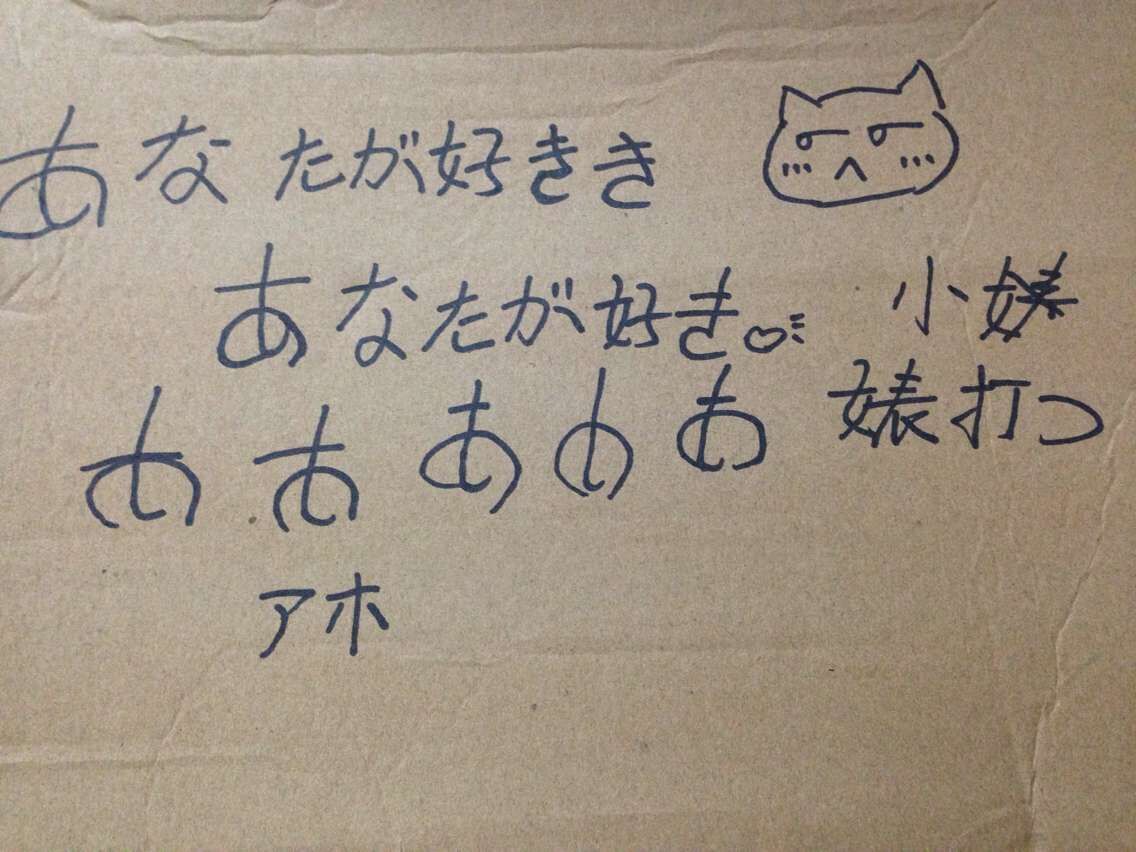 あなたが好きき
あなたが好き。
小
婊打つ
あああああ
アホ